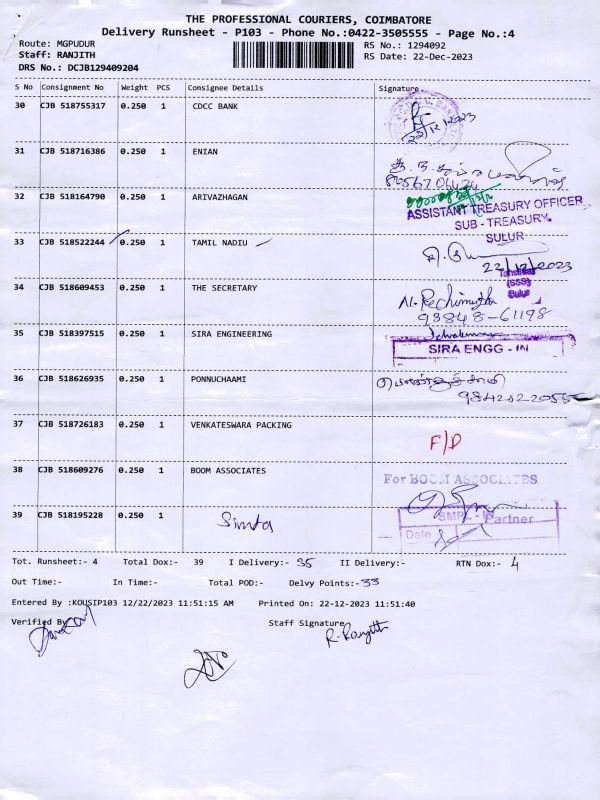 THE PROFESSIONAL COURIERS, COIMBATORE
Delivery Runsheet - P103 - Phone No.:0422-3505555 - Page No.:4
Route: MGPUDUR RS No.: 1294092
Staff: RANJITH RS Date: 22-Dec-2023
DRS No.: DCJB129409204
S No Consignment No Weight PCS Consignee Details Signature
30 CJB 518755317 0.250 1 CDCC BANK
22/12/2023
31 CJB 518716386 0.250 1 ENIAN
32 CJB 518164790 0.250 1 ARIVAZHAGAN
ASSISTANT TREASURY OFFICER
SUB - TREASURY
SULUR
33 CJB 518522244 0.250 1 TAMIL NADIU
22/12/2023
Tahsildar
(SSS)
Sulur
34 CJB 518609453 0.250 1 THE SECRETARY
93848-61198
35 CJB 518397515 0.250 1 SIRA ENGINEERING
SIRA ENGG - IN
36 CJB 518626935 0.250 1 PONNUCHAAMI
பொன்னுச்சாமி
9842422055
37 CJB 518726183 0.250 1 VENKATESWARA PACKING
F/D
38 CJB 518609276 0.250 1 BOOM ASSOCIATES
For BOOM ASSOCIATES
Partner
39 CJB 518195228 0.250 1 Simta
SMPL - IN
Date
Tot. Runsheet:- 4 Total Dox:- 39 I Delivery:- 35 II Delivery:- RTN Dox:- 4
Out Time:- In Time:- Total POD:- Delvy Points:- 33
Entered By :KOUSIP103 12/22/2023 11:51:15 AM Printed On: 22-12-2023 11:51:40
Verified By Staff Signature
R. Ranjith